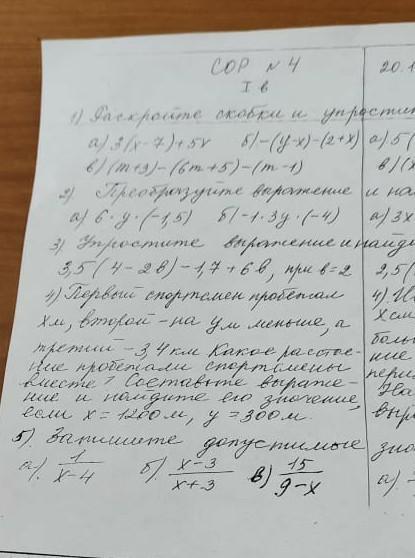 СОР №4
I в
20.1
1) Раскройте скобки и упрости
а) 3(x-7)+5x б) -(y-x)-(2+x) а) 5(
в) (m+9)-(6m+5)-(m-1) в) (x
2) Преобразуйте выражение и на
а) 6·y·(-1,5) б) -1·3y·(-4) а) 3x
3) Упростите выражение и найди
3,5(4-2в)-1,7+6в, при в=2 2,5(
4) Первый спортсмен пробежал 4) И
xм, второй - на yм меньше, а xсм
третий - 3,4 км. Какое расстоя- боль
ние пробежали спортсмены ние
вместе? Составьте выраже- пери
ние и найдите его значение, На
если x=1200м, y=300м. выр
5). Запишите допустимые зна
а). 1/(x-4) б). (x-3)/(x+3) в) 15/(9-x) а)